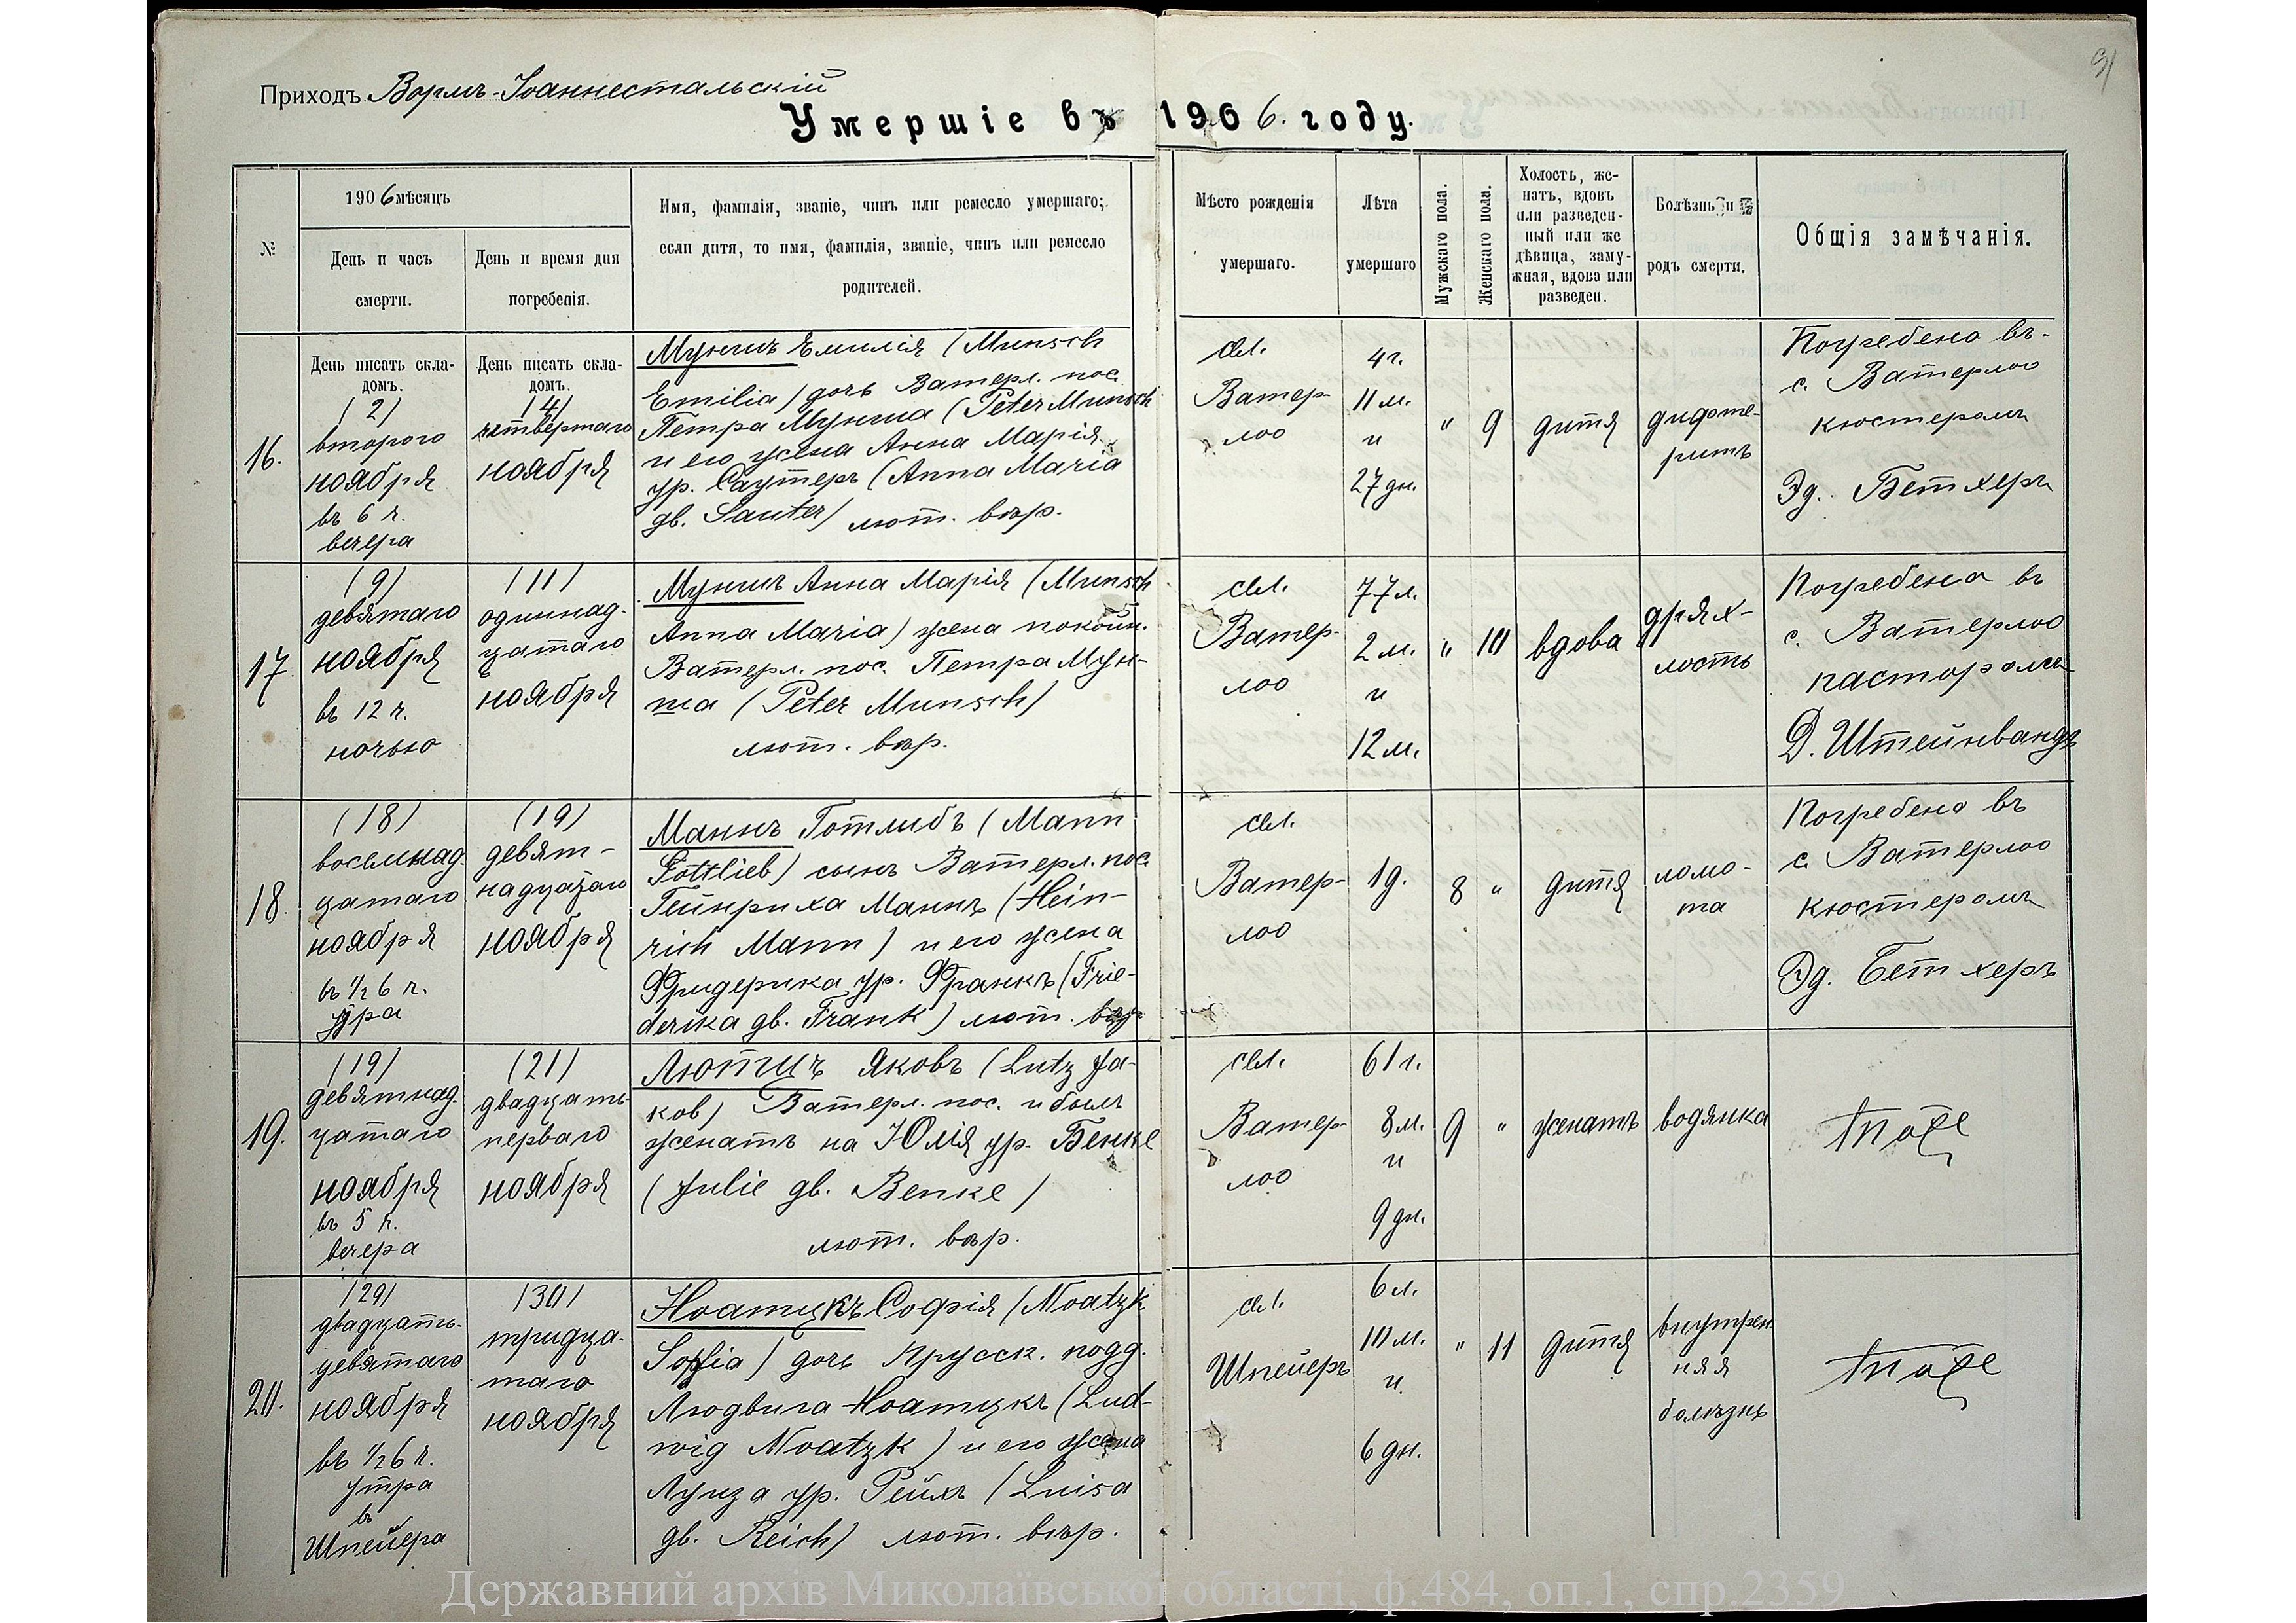 31
Приходъ Вормъ-Іоаннестальскій
Умершіе въ 1906. году.
№
1906 мѣсяцъ
День и часъ
смерти.
День и время дня
погребенія.
Имя, фамилія, званіе, чинъ или ремесло умершаго;
если дитя, то имя, фамилія, званіе, чинъ или ремесло
родителей.
Мѣсто рожденія
умершаго.
Лѣта
умершаго
Мужскаго пола.
Женскаго пола.
Холостъ, же-
натъ, вдовъ
или разведен-
ный или же
дѣвица, заму-
жная, вдова или
разведен.
Болѣзнь и
родъ смерти.
Общія замѣчанія.
16.
День писать скла-
домъ.
(2)
второго
ноября
въ 6 ч.
вечера
День писать скла-
домъ.
(4)
четвертаго
ноября
Муншъ Емилія (Munsch
Emilia) дочь Ватерл. пос.
Петра Мунша (Peter Munsch
и его жена Анна Марія
ур. Саутеръ (Anna Maria
gb. Sauter) лют. вѣр.
сел.
Ватер-
лоо
4 г.
11 м.
и
27 дн.
"
9
дитя
дифте-
ритъ
Погребено въ
с. Ватерлоо
кюстеромъ
Эд. Бетхеръ
17.
(9)
девятаго
ноября
въ 12 ч.
ночью
(11)
одиннад-
цатаго
ноября
Муншъ Анна Марія (Munsch
Anna Maria) жена покойн.
Ватерл. пос. Петра Мун-
ша (Peter Munsch)
лют. вѣр.
сел.
Ватер-
лоо
77 л.
2 м.
и
12 м.
"
10
вдова
дрях-
лость
Погребена въ
с. Ватерлоо
пасторомъ
Д. Штейнвандъ
18.
(18)
восемнад-
цатаго
ноября
въ ½ 6 ч.
утра
(19)
девят-
надцатаго
ноября
Маннъ Готлибъ (Mann
Gottlieb) сынъ Ватерл. пос.
Гейнриха Маннъ (Hein-
rich Mann) и его жена
Фридерика ур. Франкъ (Frie-
derika gb. Frank) лют. вѣр.
сел.
Ватер-
лоо
1 д.
8
"
дитя
ломо-
та
Погребено въ
с. Ватерлоо
кюстеромъ
Эд. Бетхеръ
19.
(19)
девятнад-
цатаго
ноября
въ 5 ч.
вечера
(21)
двадцать
перваго
ноября
Лютцъ Яковъ (Lutz Ja-
kob) Ватерл. пос. и былъ
женатъ на Юлія ур. Бенке
(Julie gb. Benke)
лют. вѣр.
сел.
Ватер-
лоо
61 г.
8 м.
и
9 дн.
9
"
женатъ
водянка
Тоже
20.
(29)
двадцать-
девятаго
ноября
въ ½ 6 ч.
утра
въ
Шпейера
(30)
тридца-
таго
ноября
Ноатцкъ Софія (Noatzk
Sofia) дочь Прусск. подд.
Людвига Ноатцкъ (Lud-
wig Noatzk) и его жена
Луиза ур. Рейхъ (Luisa
gb. Reich) лют. вѣр.
сел.
Шпейеръ
6 л.
10 м.
и
6 дн.
"
11
дитя
внутрен-
няя
болѣзнь
Тоже
Державний архів Миколаївської області, ф.484, оп.1, спр.2359